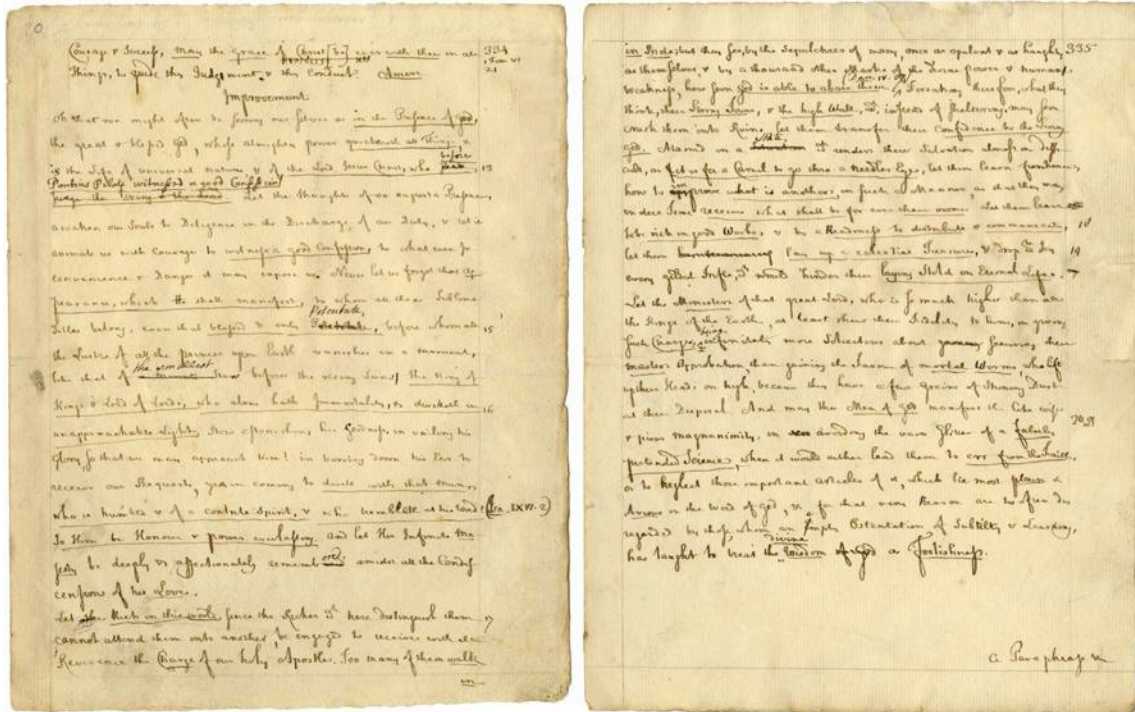 20
Courage & Success, may the Grace of Christ [be] ever with thee in all 334
Things, to guide thy Judgment & thy Conduct. Amen 1 Tim VI 21
Improvement
Oh that we might often be seeing our selves as in the Presence of God,
the great & blessed God, whose almighty power quickneth all Things, &
is the Life of universal Nature, & of the Lord Jesus Christ, who before 13
Pontius Pilate witnessed a good Confession
Let the Thoughts of so august a Presence
awaken our Souls to Diligence in the Discharge of our Duty, & let it
animate us with Courage to witness a good Confession, to what ever In-
convenience & Danger it may expose us. Never let us forget that Ap-
pearance, which He shall manifest, to whom all these Sublime
Titles belong, even that blessed & only Potentate, before whom all 15
the Lustre of all the princes upon Earth vanishes in a moment,
like that of the smallest Star before the rising Sun; the King of
Kings & Lord of Lords, who alone hath Immortality, & dwelleth in 16
unapproachable Light. How astonishing his Goodness, in vailing his
Glory, so that we may approach Him! in bowing down his Ear to
receive our Requests, yea in coming to dwell with that Man,
who is humble & of a contrite Spirit, & who trembleth at his Word! (Isa. LXVI. 2)
To Him be Honour & power everlasting, and let His Infinite Ma-
jesty be deeply & affectionately remembred amidst all the Condes-
cension of his Love.
Let the Rich in this world, since the Riches yt here distinguish them 17
cannot attend them into another, be engaged to receive with all
Reverence the Charge of our holy Apostles. Too many of them walk
in
in Pride; but they see, by the Sepulchres of many, once as opulent & as haughty 335
as themselves, & by a thousand other Marks of the Divine power & human
Weakness, how soon God is able to abase them (Dan. IV. 37) Forsaking therefore, what they
think, their Strong Tower, & the high Wall, yt, instead of Sheltering, may soon
crush them into Ruine, let them transfer their Confidence to the living
God. Alarmed in a State yt renders their Salvation almost as diffi-
cult, as for a Camel to go thro a Needles Eye, let them learn
how to improve what is anothers, in such a Manner as that they may
in due Time receive what shall be for ever their owne. Let them learn
to be rich in good Works, & by a Readiness to distribute & communicate, 18
let them lay up a celestial Treasure, & drop 19
every gilded Trifle, yt would hinder their laying Hold on Eternal Life.
Let the Ministers of that great Lord, who is so much higher than all
the Kings of the Earth, at least shew their Fidelity to Him, in giving
such Charges, being infinitely more solicitous about securing their
Masters Approbation than gaining the Favour of mortal Worms, who lift
up their Heads on high, because they have a few grains of shining Dust
at their Disposal. And may the Men of God manifest the like wise
& pious magnanimity, in avoiding the vain Glitter of a falsely 20, 21
pretended Science, when it would either lead them to err from the Faith,
or to Neglect those important Articles of it, which lie most plain &
obvious in the Word of God, & for that very Reason are too often dis-
regarded by those, whom an empty Ostentation of Subtilty & Learning,
has taught to treat the divine Wisdom of God as Foolishness.
a Paraphrase &